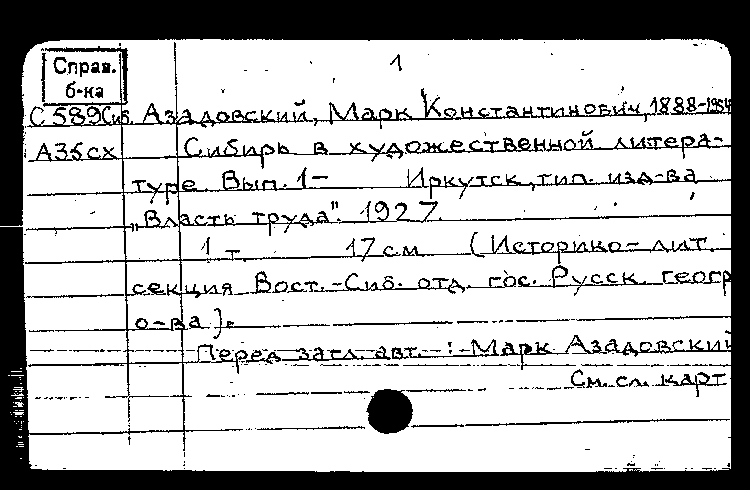 1
Справ.
б-ка
С 589 Сиб. Азадовский, Марк Константинович, 1888-1954
А35сх Сибирь в художественной литера-
туре. Вып. 1- Иркутск, тип. изд-ва
„Власть труда". 1927.
1 т. 17 см. (Историко-лит.
секция Вост.-Сиб. отд. гос. Русск. геогр
о-ва).
Перед загл. авт. -:- Марк Азадовский
См. сл. карт